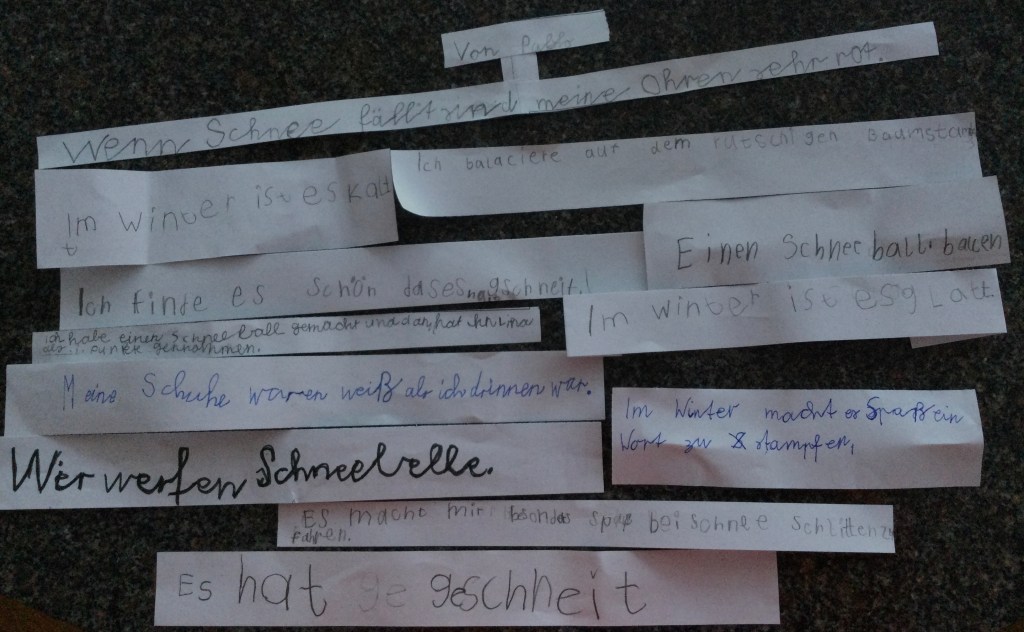 Von
Wenn Schnee fällt und meine Ohren sehr rot.
Ich balaciere auf dem rutschigen Baumstam
Im Winter ist es kalt
Einen Schneeball backen
Ich finde es schön das es geschneit!
Im Winter ist es glatt.
ich habe einen Schneeball gemacht und dan hat ihn Lina
genommen.
Meine Schuhe waren weiß als ich drinnen war.
Im Winter macht es Spaß ein
Wort zu stampfen,
Wir werfen Schneebelle.
ES macht mir besondes spaß bei schnee Schlitten zu
fahren.
Es hat ge geschneit